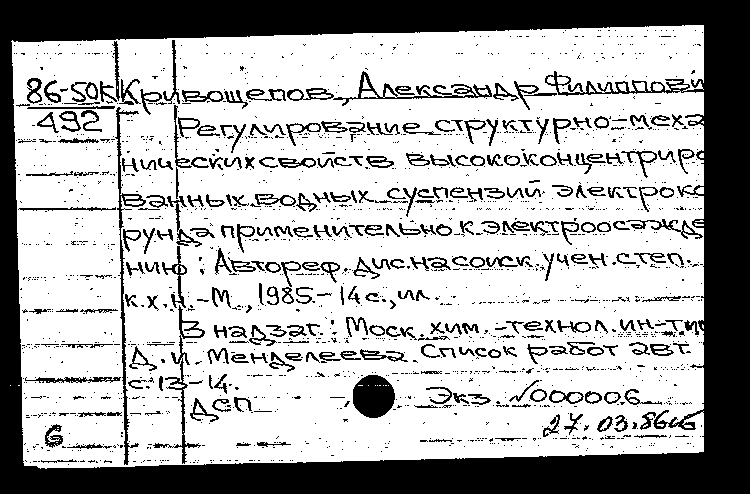 86-50к Кривощепов, Александр Филиппови
492 Регулирование структурно-меха
нических свойств высококонцентриро
ванных водных суспензий электроко
рунда применительно к электроосажде
нию: Автореф. дис. на соиск. учен. степ.
к.х.н. -М., 1985.-14с., ил.
В надзаг.: Моск. хим.-технол. ин-т им
Д.И. Менделеева. Список работ авт.
с. 13-14.
ДСП Экз. №000006
6 27.03.86